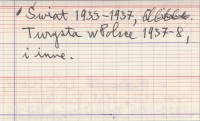 Świat 1935-1937,
Turysta w Polsce 1937-8,
i inne.